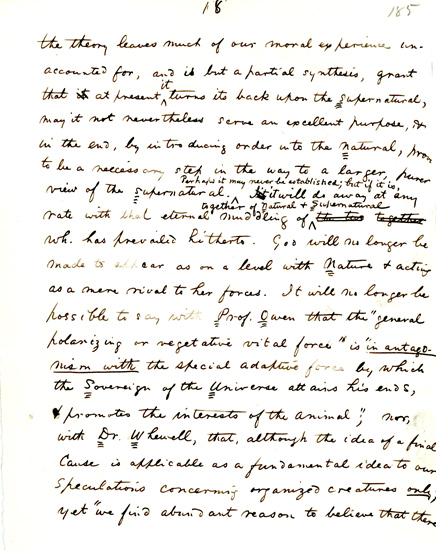 18
185
the theory leaves much of our moral experience un-
accounted for, and is but a partial synthesis, grant
that at present it turns its back upon the supernatural,
may it not nevertheless serve an excellent purpose, &
in the end, by introducing order into the natural, prove
to be a neccessary step in the way to a larger, purer
Perhaps it may never be established; but if it is,
view of the supernatural. it will do away at any
together of Natural & Supernatural
rate with that eternal muddling of the two together
wh. has prevailed hitherto. God will no longer be
made to appear as on a level with Nature & acting
as a mere rival to her forces. It will no longer be
possible to say with Prof. Owen that the "general
polarizing or vegetative vital force" is "in antago-
nism with the special adaptive force by which
the Sovereign of the Universe attains his ends,
& promotes the interests of the animal"; nor,
with Dr. Whewell, that, although the idea of a final
Cause is applicable as a fundamental idea to our
speculations concerning organized creatures only,
yet "we find abundant reason to believe that there